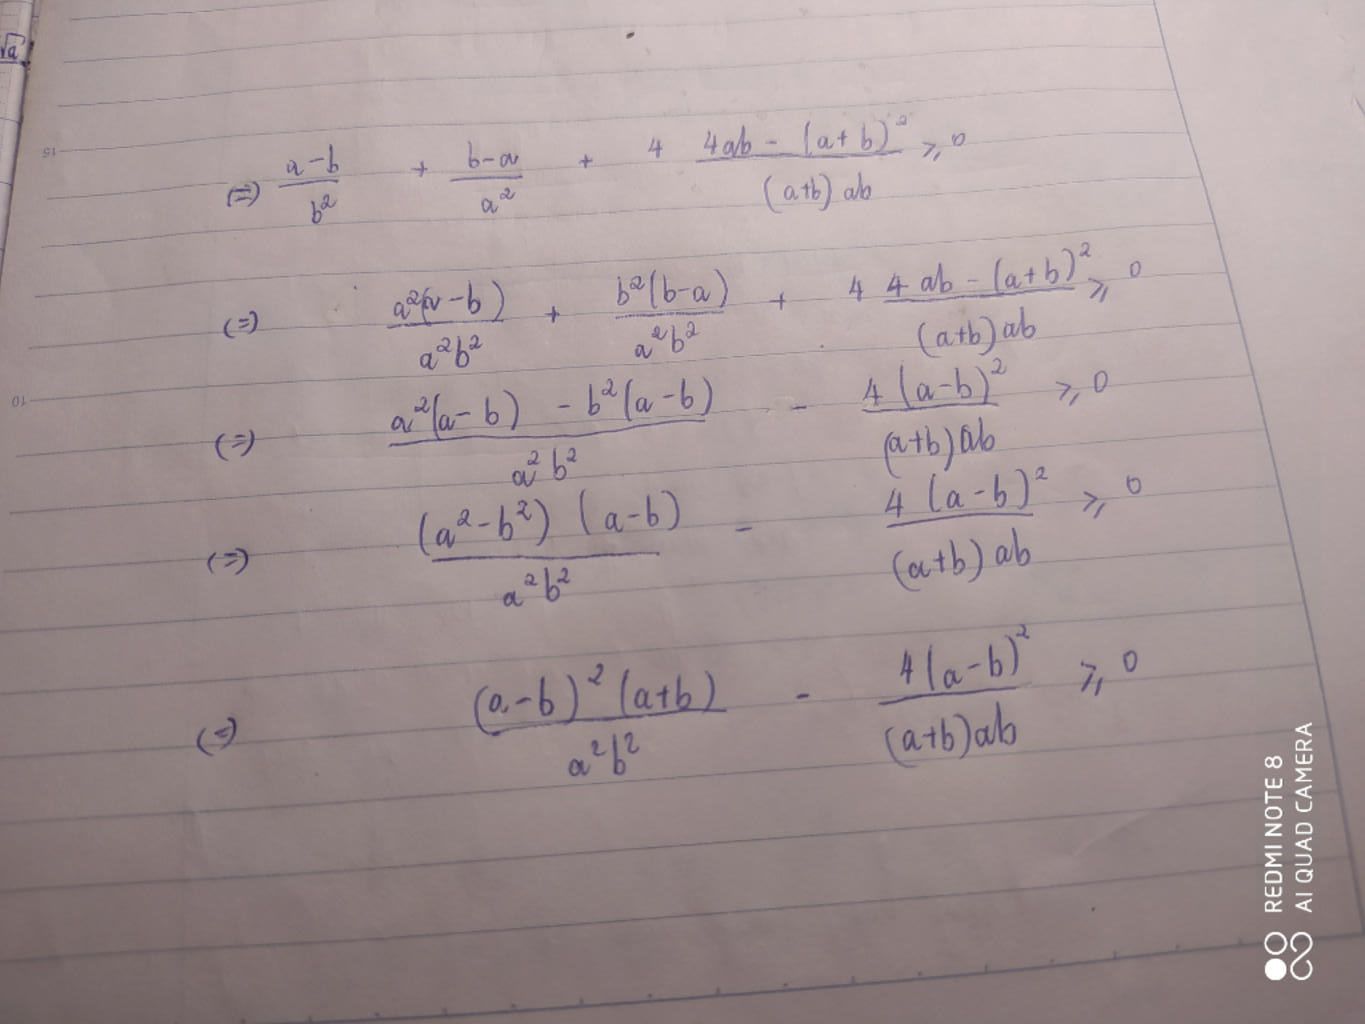 √a
15
(=) \frac{a-b}{b^2} + \frac{b-a}{a^2} + 4 \frac{4ab-(a+b)^2}{(a+b)ab} ⩾ 0
(=) \frac{a^2(a-b)}{a^2b^2} + \frac{b^2(b-a)}{a^2b^2} + 4 \frac{4ab-(a+b)^2}{(a+b)ab} ⩾ 0
10
(=) \frac{a^2(a-b) - b^2(a-b)}{a^2b^2} - \frac{4(a-b)^2}{(a+b)ab} ⩾ 0
(=) \frac{(a^2-b^2)(a-b)}{a^2b^2} - \frac{4(a-b)^2}{(a+b)ab} ⩾ 0
(=) \frac{(a-b)^2(a+b)}{a^2b^2} - \frac{4(a-b)^2}{(a+b)ab} ⩾ 0
REDMI NOTE 8
AI QUAD CAMERA